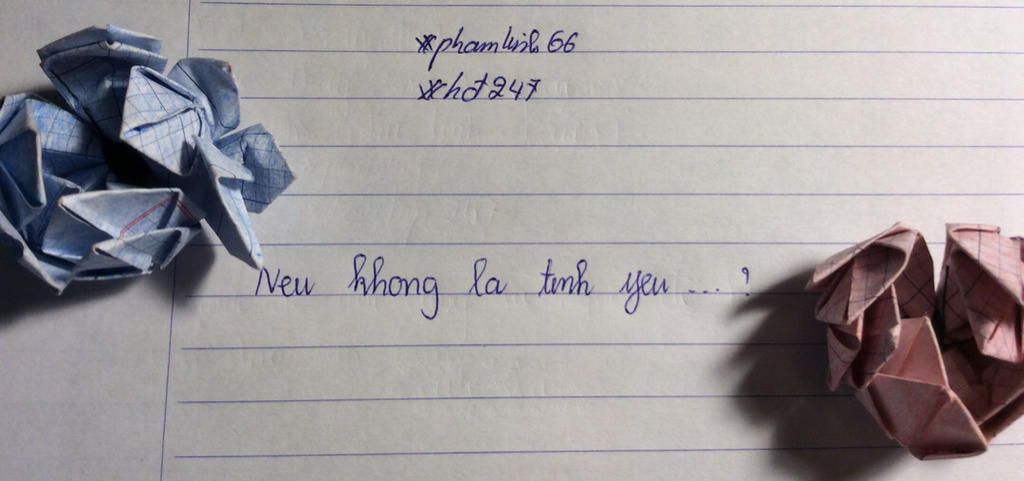 *phamlinh66
*hot247
Neu khong la tinh yeu ... ?